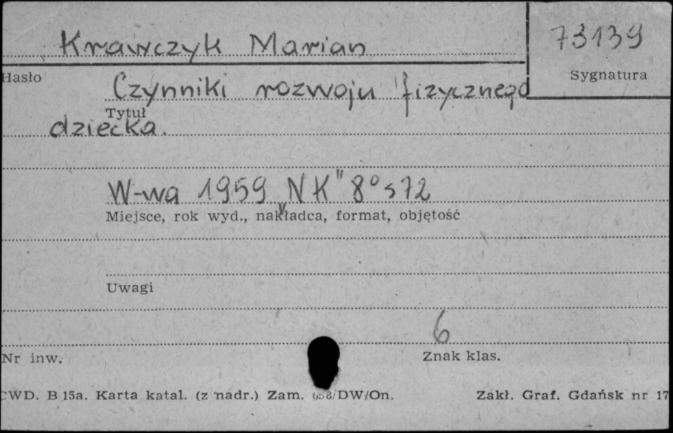 Krawczyk Marian
73139
Hasło
Sygnatura
Czynniki rozwoju fizycznego
Tytuł
dziecka.
W-wa 1959 „NK" 8° s 72
Miejsce, rok wyd., nakładca, format, objętość
Uwagi
6
Nr inw.
Znak klas.
CWD. B 15a. Karta katal. (z nadr.) Zam. /DW/On.
Zakł. Graf. Gdańsk nr 17